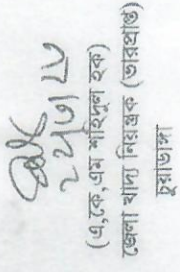 (এ,কে,এম শহিদুল হক)
জেলা খাদ্য নিয়ন্ত্রক (ভারপ্রাপ্ত)
চুয়াডাঙ্গা